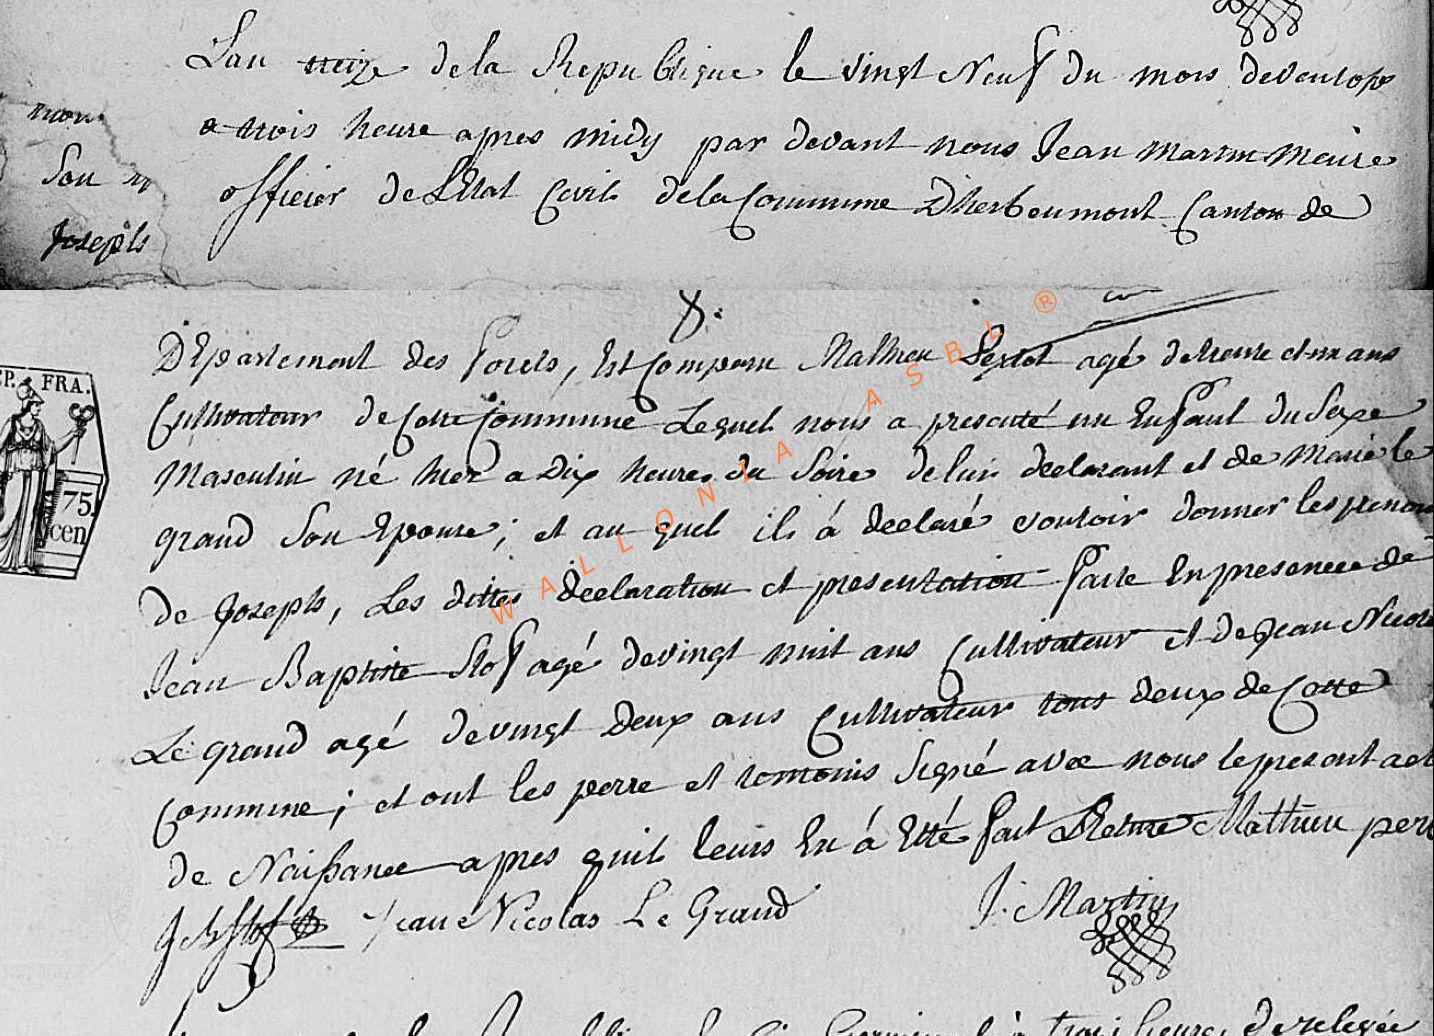 L'an treize de la Republique le vingt Neuf du mois de ventose
a trois heure apres midy par devant nous Jean Martin Maire
officier de L'Etat Civil de la Commune D'herbeumont Canton de
Son
Joseph
8.
DEpartement des Forets, Est Comparu Mathieu agé de trente et un ans
Cultivateur de Cette Commune Lequel nous a presenté un Enfant du Sexe
Masculin né hier a Dix heures du Soire de lui declarant et de Marie le
grand Son Epouse; et au quel ils à declaré vouloir donner les prenom
de Joseph, Les dittes declaration et presentation faite En presence de
Jean Baptiste Stof agé de vingt nuit ans Cultivateur et de Jean Nicolas
Le grand agé de vingt Deux ans Cultivateur tous deux de Cette
Commune; et ont les perre et temonis Signé avec nous le present act
de Naissance apres quil leurs En à Etté fait Mathieu pere
Jean Nicolas Le Grand J. Martin
EP. FRA.
75.
cen
WALLONIA ASBL ®